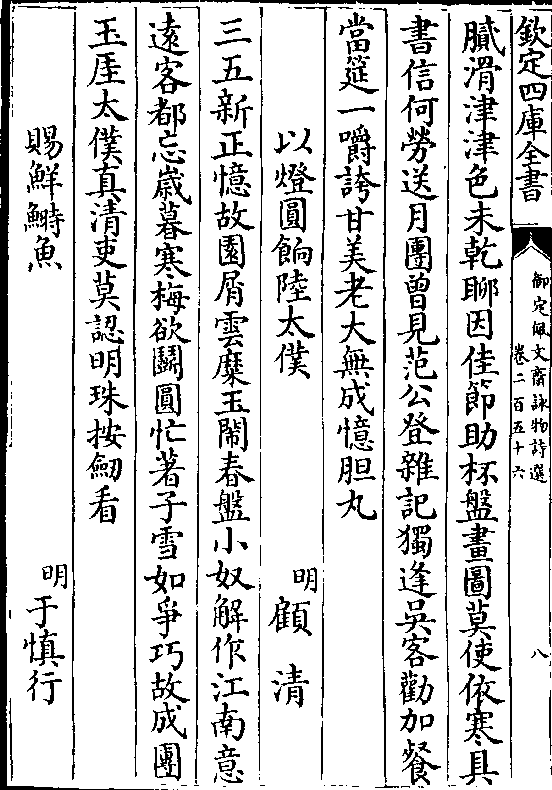 欽定四庫全書
御定佩文齋詠物詩選
卷二百五十六
八
膩滑津津色未乾聊因佳節助杯盤畫圖莫使依寒具
書信何勞送月團曾見范公登雜記獨逢吳客勸加餐
當筵一嚼誇甘美老大無成憶胆丸
以燈圓餉陸太僕
明
顧清
三五新正憶故園屑雲糜玉鬧春盤小奴解作江南意
遠客都忘嵗暮寒梅欲鬬圓忙著子雪如爭巧故成團
玉厓太僕真清吏莫認明珠按劒看
賜鮮鰣魚
明
于慎行